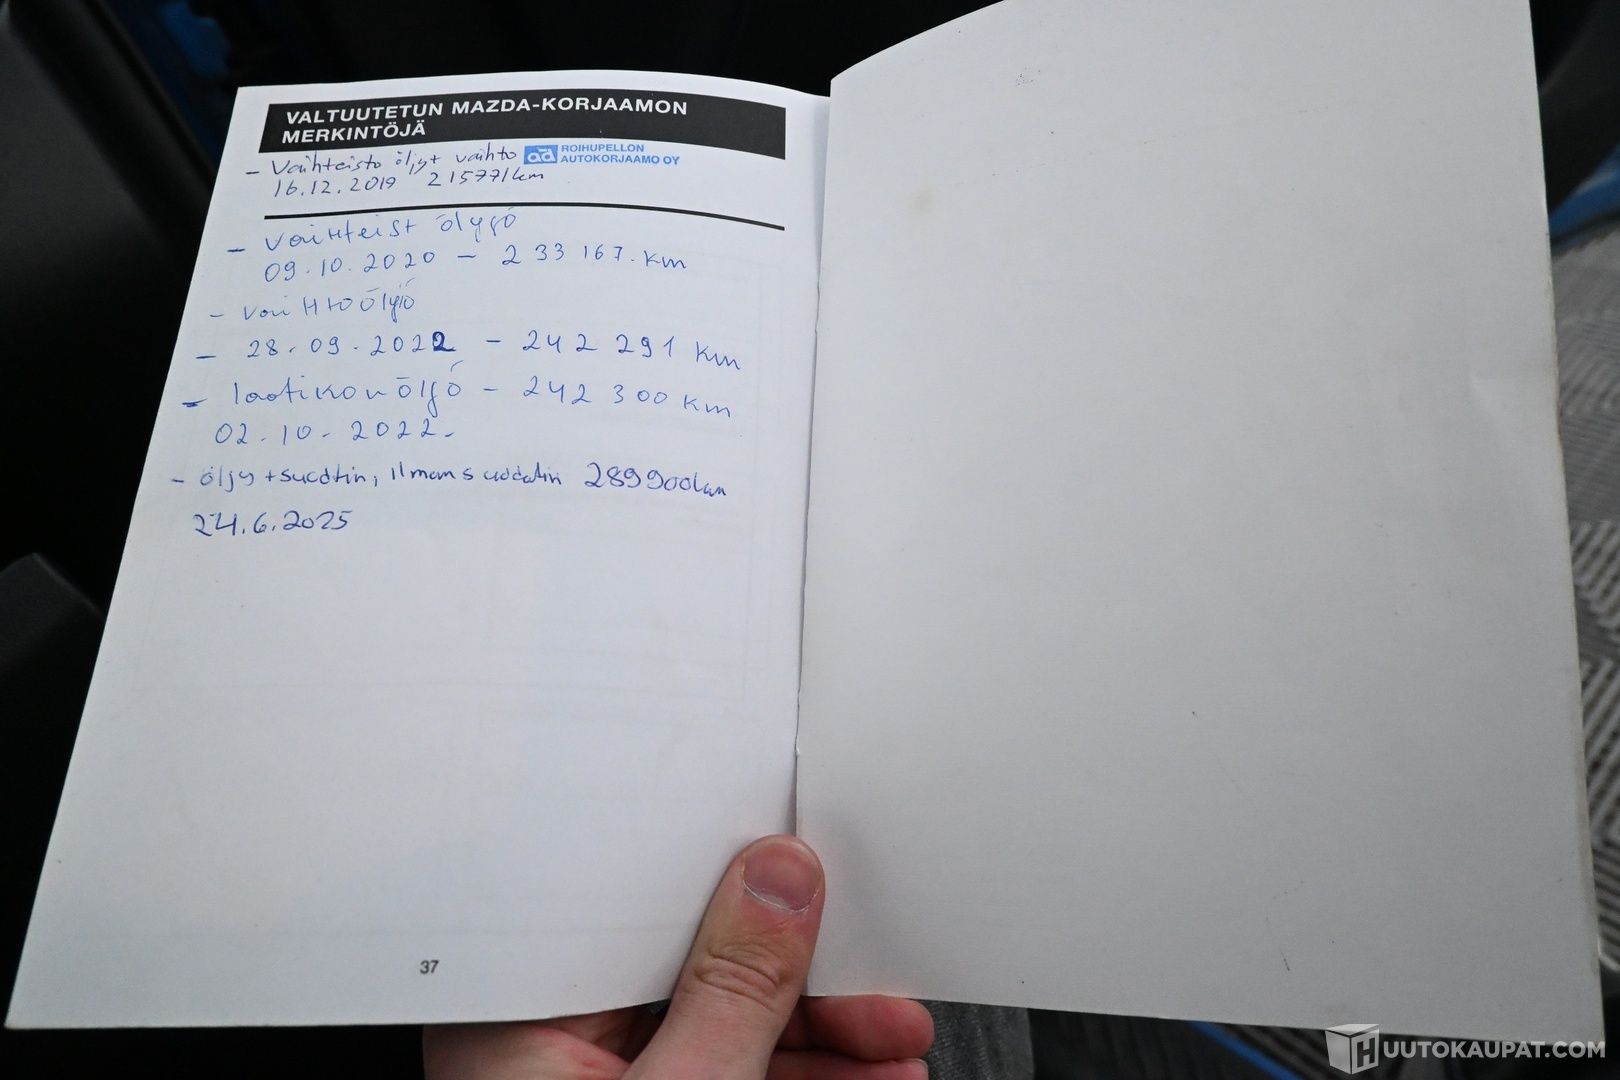 VALTUUTETUN MAZDA-KORJAAMON
MERKINTÖJÄ
- Vaihteisto öljyt vaihto ad ROIHUPELLON
AUTOKORJAAMO OY
16.12.2019 215771km
- Vaihteist ölyjö
09.10.2020 - 233 167. km
- vaihtoölyjö
- 28.09.2022 - 242 291 km
- laatikonöljö - 242 300 km
02.10-2022-
- öljy +suodtin, ilmansuodatin 289900km
24.6.2025
37
HUUTOKAUPAT.COM